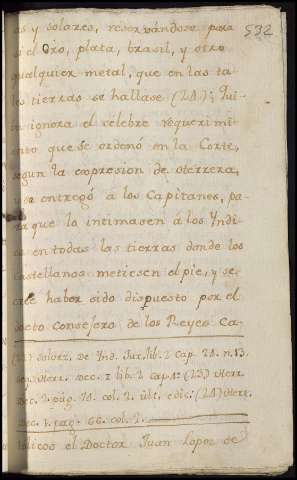 532
as y solares, reservandose para
si el Oro, plata, brasil, y otro
qualquier metal, que en las ta-
les tierras se hallase (21); Qui-
en ignora el celebre requerimi-
ento que se ordenó en la Corte,
segun la expresion de Herrera,
y se entregó á los Capitanes, pa-
ra que lo intimasen á los Yndi-
os en todas las tierras donde los
Castellanos metiesen el pie, y se
cree haber sido dispuesto por el
docto Consejero de los Reyes Ca-
Solorz. de Ynd. Jur. lib. 2 cap. 24. n. 13.
Herr. Dec. 1 lib. 2 cap. 1º (23) Herr.
Dec. 2. pág. 10. col. 2. ült. edic: (21) Herr.
Dec. 1. pag. 66. col. 2.
tolicos el Doctor Juan Lopez de